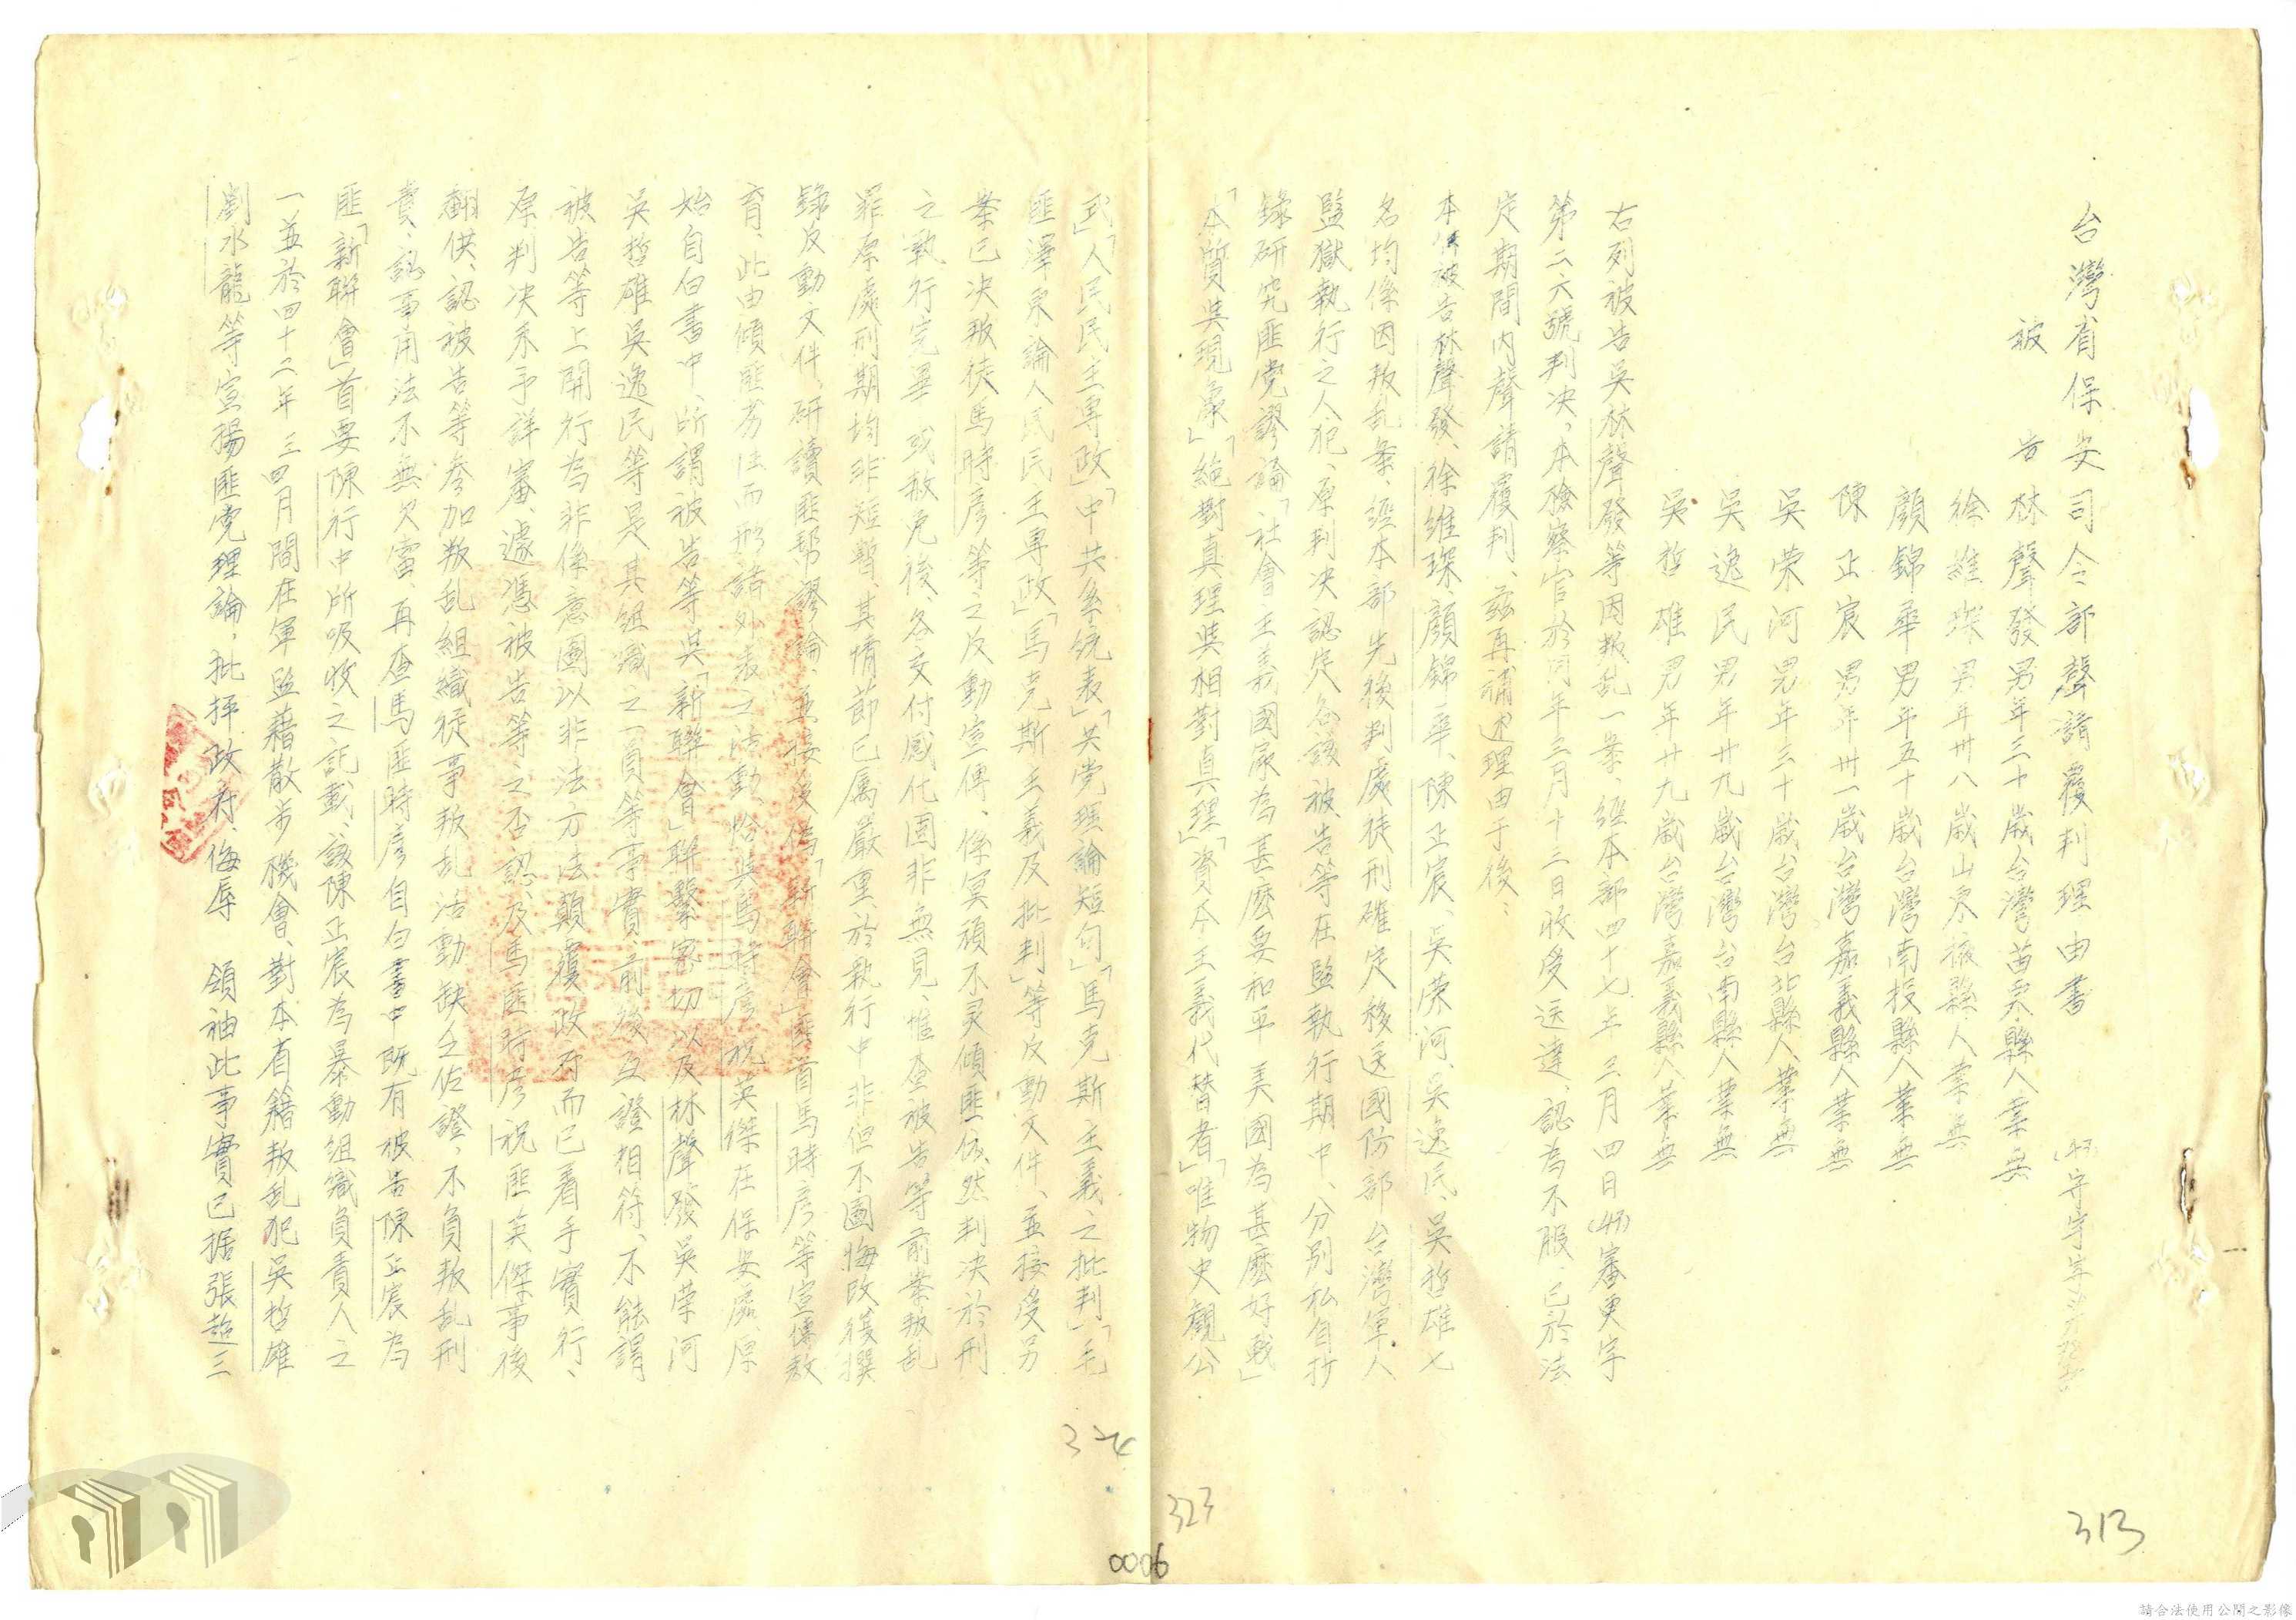 台灣省保安司令部聲請覆判理由書
(47)字
被告 林聲發 男年三十歲台灣苗栗縣人業無
徐維琛 男年卅八歲山東掖縣人業無
顏錦華 男年五十歲台灣南投縣人業無
陳正宸 男年卅一歲台灣嘉義縣人業無
吳榮河 男年三十歲台灣台北縣人業無
吳逸民 男年廿九歲台灣台南縣人業無
吳哲雄 男年廿九歲台灣嘉義縣人業無
右列被告吳林聲發等因叛乱一案、經本部四十七年三月四日(47)審更字
第二六號判决、本檢察官於同年三月十三日收受送達、認為不服、已於法
定期間內聲請覆判、茲再補述理由于後：
本件被告林聲發、徐維琛、顏錦華、陳正宸、吳榮河、吳逸民、吳哲雄七
名均係因叛乱案、經本部先後判處徒刑確定移送國防部台灣軍人
監獄執行之人犯、原判决認定各該被告等在監執行期中、分別私自抄
錄研究匪党謬論「社會主義國家為甚麼要和平 美國為甚麼好戰」
「本質與現象」「絕對真理與相對真理」「資本主義代替者」「唯物史觀公
式」「人民民主專政」「中共系統表」「共党理論短句」「馬克斯主義之批判」「毛
匪澤東論人民民主專政」「馬克斯主義及批判」等反動文件、並接受另
案已决叛徒馬時彥等之反動宣傳、係冥頑不灵傾匪依然判决於刑
之執行完畢或赦免後、各交付感化固非無見、惟查被告等前案叛乱
罪原處刑期均非短暫、其情節已属嚴重、於執行中非但不圖悔改復撰
錄反動文件、研讀匪幫謬論、並接受偽「新聯會」匪首馬時彥等宣傳教
育、此由傾匪 而形諸外表之活動、恰與馬時彥祝英傑在保安處原
始自白書中、所謂被告等與「新聯會」聯繫密切以及林聲發吳榮河
吳哲雄吳逸民等是其組織之一員等事實、前後互證相符、不能謂
被告等上開行為非係意圖以非法方法顛覆政府而已着手實行、
原判决未予詳審、遽憑被告等之否認、及馬匪時彥祝匪英傑事後
翻供、認被告等參加叛乱組織從事叛乱活動缺乏佐證、不負叛乱刑
責、認事用法不無欠當、再查馬匪時彥自白書中既有被告陳正宸為
匪「新聯會」首要陳行中所吸收之記載、該陳正宸為暴動組織負責人之
一並於四十二年三四月間在軍監藉散步機會、對本省籍叛乱犯吳哲雄
劉水龍等宣揚匪党理論、批抨政府、侮辱 領袖此事實已据張超三
324
323
313
0006
請合法使用公開之影像